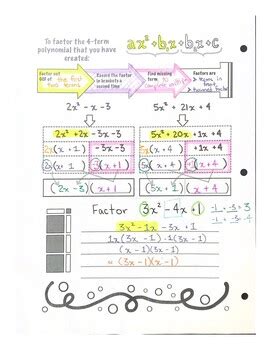 To factor the 4-term
polynomial that you have
created:
ax² + b₁x + b₂x + c
Factor out
GCF of the first
two terms
Record the factor
in brackets a
second time
Find missing
term to
complete
Factors are
2x² - x - 3
5x² + 21x + 4
2x² + 2x - 3x - 3
5x² + 20x + 1x + 4
2x(x + 1)
-3x - 3
5x(x + 4)
+1x + 4
2x(x + 1) -3(x + 1)
5x(x + 4) +1(x + 4)
(2x - 3)(x + 1)
(5x + 1)(x + 4)
Factor 3x² - 4x + 1
-1 × -3 = 3
-1 + -3 = -4
3x² - 1x - 3x + 1
1x(3x - 1) - 1(3x - 1)
(x - 1)(3x - 1)
= (3x - 1)(x - 1)